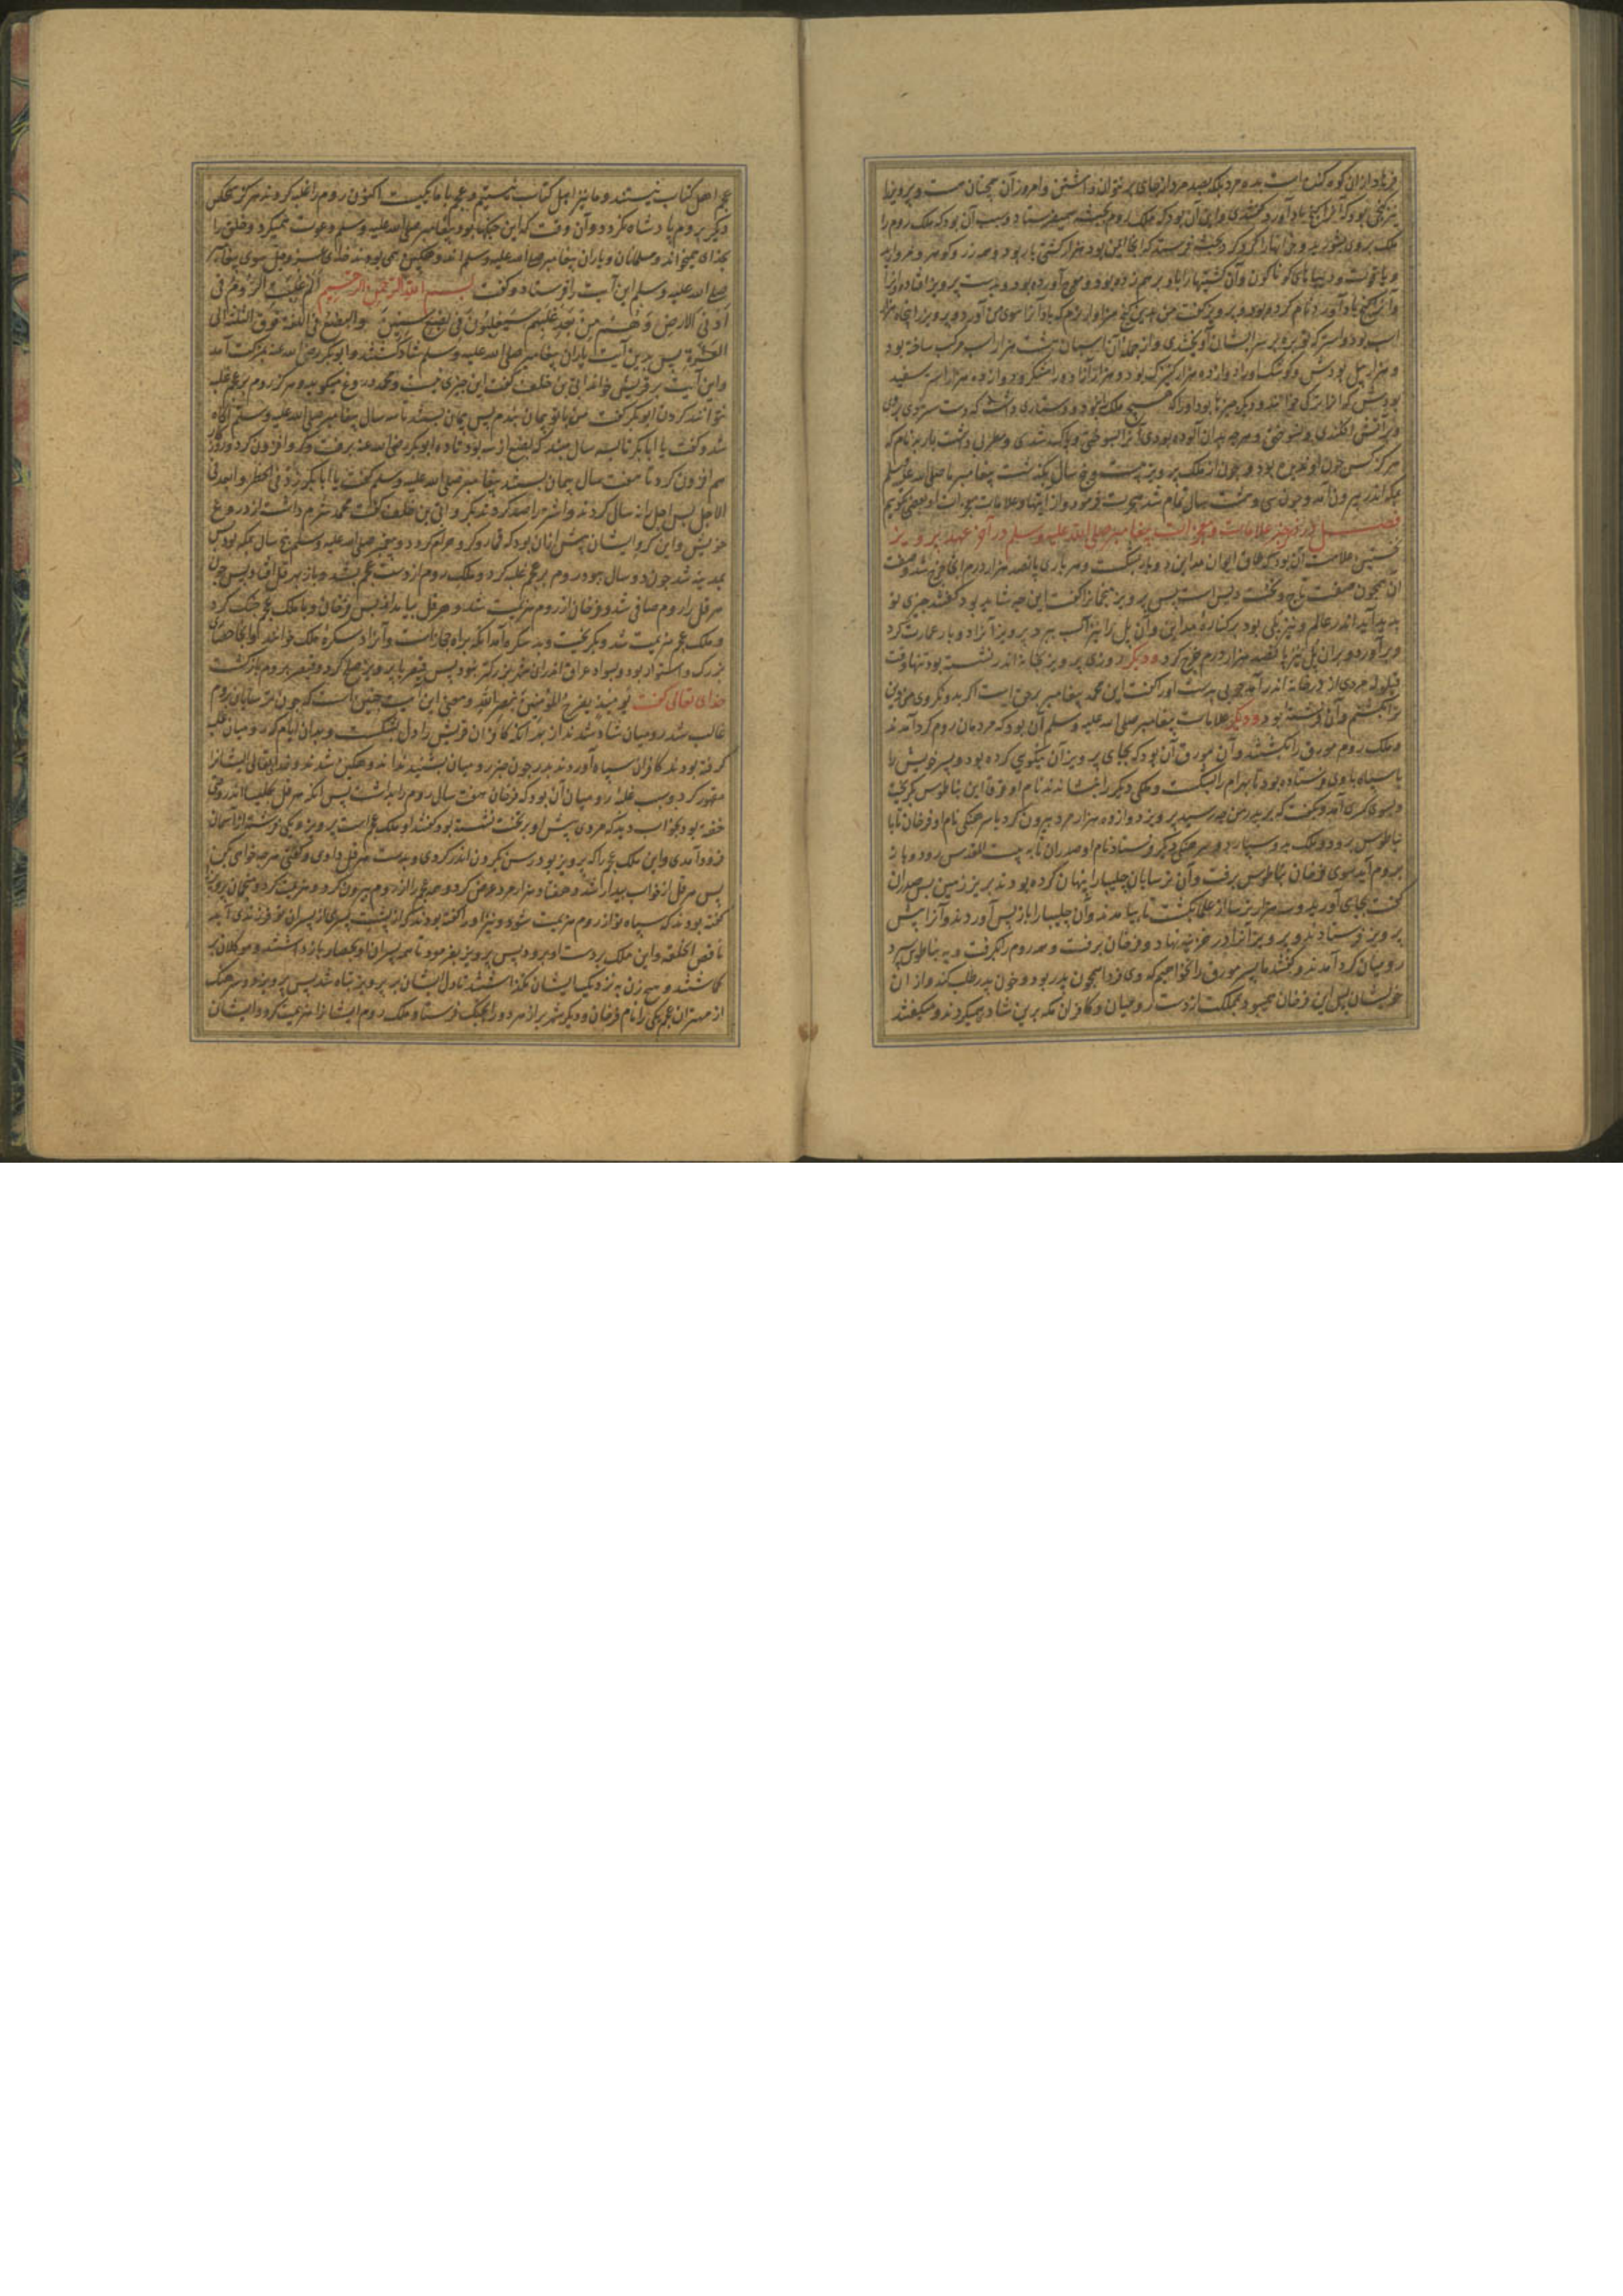 فرهاد از آن کوه کنده است بده مرد بلکه بصد مرد از جای برنتوان داشتن و امروز آن همچنان هست و پرویز را
نیز گنجی بود که آنرا گنج باد آورد گفتندی و این آن بود که ملک روم بحبشه میفرستاد و سبب آن بود که ملک روم را
ملک بروی بشوریده و خزانها را کرد کرد و بحبشه فرستد که آنجا ایمن بود هزار کشتی بار بود و همه زر و گوهر و مروارید
و یاقوت و دیباهای گوناگون و آن کشتیها را باد بر هم زده بود و موج آورده بود و بدست پرویز افتاده و آنرا
و آنرا گنج باد آورد نام کرده بود و پرویز گفت من بدین گنج سزاوارترم که باد آنرا سوی من آورد و پرویز را پنجاه هزار
و هزار پیل بودش و کوشک او را دوازده هزار کنیزک بود و هزار از آزاد و رامشگر و دوازده هزار استر سفید
هرگز کس چون او ندیده بود و چون از ملک پرویز بیست و پنج سال بگذشت پیغامبر ما صلی الله علیه و سلم
بمکه اندر بیرون آمد و چون سی و هشت سال تمام شد هجرت فرمود و از اینها و علامات نبوت او بعضی بگویم
فصل در ذکر چیز علامات و معجزات پیغامبر صلی الله علیه و سلم در آخر عهد پرویز
نخستین علامت آن بود که طاق ایوان مداین دوبار بشکست و هر باری پانصد هزار درم بر آن خرج شد و صفت
آن همچون صفت تاج و تخت و دیس است پس پرویز منجمانرا گفت این چه شاید بود گفتند چیزی نو
پدید آید اندر عالم و نیز پلی بود بر کناره مداین و آن پل را نیز آب ببرد پرویز آنرا دوبار عمارت کرد
و برآورد و بر آن پل نیز پانصد هزار درم خرج کرد و دیگر روزی پرویز بخانه اندر نشسته بود تنها وقت
قیلوله مردی از در خانه اندر آمد چوبی بدست او را گفت این محمد پیغامبر بر حق است اگر بدو نگروی من دین
ترا بشکنم و آن نشسته بود و دیگر علامات پیغامبر صلی الله علیه و سلم آن بود که مردمان روم گرد آمدند
و ملک روم مورق را بکشتند و آن مورق آن بود که بجای پرویز آن نیکویی کرده بود و پسر خویش را
با سپاه با وی فرستاده بود تا بهرام را بشکست و ملکی دیگر را بنشاندند نام او فوقا این بناطوس بگریخت
و بسوی کسری آمد و بگفت که بر پدر من چه رسید پرویز دوازده هزار مرد بیرون کرد با سرهنگی نام او فرخان تا با
بناطوس برود و ملک بدو سپارد و سرهنگی دیگر فرستاد نام او صدران تا به بیت المقدس رود و باز
بروم آید سوی فرخان بناطوس برفت و آن ترسایان چلیپا را پنهان کرده بودند بزیر زمین پس صدران
گفت بجای آورید و سه هزار ترسا از علما بکشت تا بیامدند و آن چلیپا را باز پس آوردند و آنرا پیش
پرویز فرستادند و پرویز آنرا در خزینه نهاد و فرخان برفت و همه روم را بگرفت و به بناطوس سپرد
رومیان گرد آمدند و گفتند ما پسر مورق را نخواهیم که وی فردا همچون پدر بود و خون پدر طلب کند و از آن
خویشان پس این فرخان بجست و مملکت از دست رومیان و کافران مکه برین شادی میکردند و میگفتند
عجم اهل کتاب نیستند و ما نیز اهل کتاب نیستیم و عجم با ما یکیست اکنون روم را غلبه کردند هرگز بحکس
دیگر بروم پادشاه نگردد و آن وقت که این جنگها بود پیغامبر صلی الله علیه و سلم دعوت همیکرد و خلق را
بخدای میخواند و مسلمانان و یاران پیغامبر صلی الله علیه و سلم اندوهگین همی بودند خدای عز و جل سوی پیغامبر
صلی الله علیه و سلم این آیت را فرستاد و گفت بسم الله الرحمن الرحیم الم غلبت الروم فی
ادنی الارض و هم من بعد غلبهم سیغلبون فی بضع سنین و البضع فی اللغة فوق الثلثة الی
العشرة پس بدین آیت یاران پیغامبر صلی الله علیه و سلم شاد گشتند و ابوبکر رضی الله عنه بحرکت آمد
و این آیت بر قریش خواند ابی بن خلف گفت این چیزی نیست و محمد دروغ میگوید و هرگز روم بر عجم غلبه
نتوانند کردن ابوبکر گفت من با تو پیمان بندم پس پیمان بستند تا سه سال پیغامبر صلی الله علیه و سلم آگاه
شد و گفت یا ابابکر تا سه سال مبند که بضع از سه بود تا ده ابوبکر رضی الله عنه برفت و گرو افزون کرد و روزگار
هم افزون کرد تا هفت سال پیمان بستند پیغامبر صلی الله علیه و سلم گفت یا ابابکر زد فی الخطر و امدد فی
الاجل پس اجل را نه سال کردند و اشتر را صد کردند بکر و ابی بن خلف گفت محمد شرم داشت از دروغ
خویش و این گرو ایشان پیش از آن بود که قمار و گرو حرام کرد و پیغمبر صلی الله علیه و سلم پنج سال بمکه بود پس
بمدینه شد چون دو سال ببود روم بر عجم غلبه کرد و ملک روم از دست عجم بشد و باز بهرقل افتاد پس چون
هرقل را روم صافی شد و فرخان از روم هزیمت شد و هرقل بیامد از پس فرخان و با ملک عجم جنگ کرد
و ملک عجم هزیمت شد و بگریخت و بدسکره آمد آنکه براه حجاز است و آنرا دسکره ملک خوانند او آنجا حصاری
بزرگ و استوار بود و بسواد عراق اندر ازان شهر بزرگتر نبود پس قیصر با پرویز صلح کرد و قیصر بروم بازگشت
خدای تعالی گفت یومئذ یفرح المؤمنون بنصر الله و معنی این آیت چنین است که چون ترسایان روم
غالب شد رومیان شاد شدند از بهر آنکه کافران قریش را دل بشکست و بدان ایام که رومیان غلبه
گرفته بودند کافران سپاه آوردند ببدر چون خبر رومیان بشنیدند اندوهگین شدند و خدای تعالی ایشانرا
مقهور کرد و سبب غلبه رومیان آن بود که فرخان هفت سال روم را بداشت پس آنکه هرقل بکلیسا اندر وقتی
خفته بود بخواب دید که مردی پیش او بر تخت نشسته بود گفتند او ملک عجم است پرویز و یکی فرشته از آسمان
فرود آمدی و این ملک عجم را که پرویز بود رسن بگردن اندر کردی و بدست هرقل دادی و گفتی هرچه خواهی بکن
پس هرقل از خواب بیدار شد و هفتاد هزار مرد عرض کرد و همه عجم را از روم بیرون کرد و هزیمت کرد و منجمان پرویز را
گفته بودند که سپاه تو از روم هزیمت شود و نیز او را گفته بودند که از پشت پسری از پسران تو فرزندی آید
ناقص الخلقه و این ملک بر دست او برود پس پرویز بفرمود تا همه پسران او بحصار باز داشتند و موکلان بر
گماشتند و هیچ زن به نزدیک ایشان نگذاشتند تا دل ایشان بر پرویز تباه شد پس پرویز دو سرهنگ
از مهتران عجم یکی را نام فرخان و دیگر شهربراز هر دو را بجنگ فرستاد و ملک روم ایشانرا هزیمت کرد و ایشان